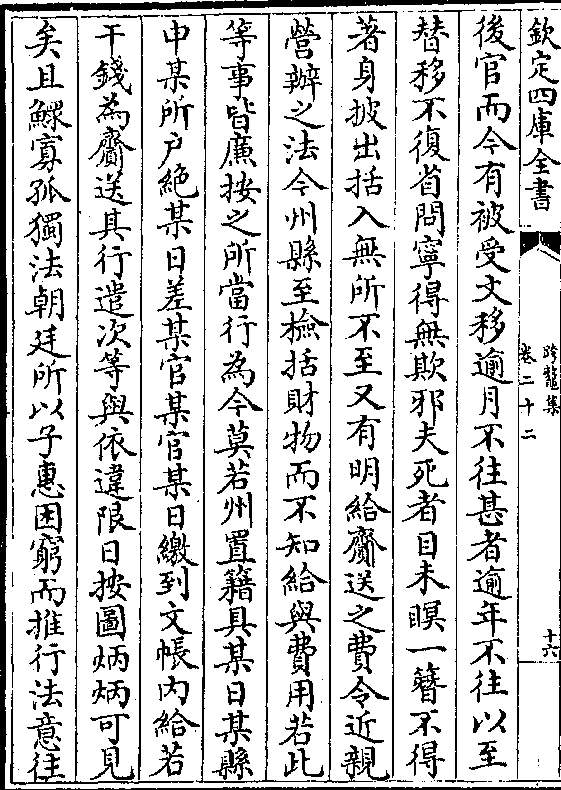 欽定四庫全書
跨鼇集
卷二十二
十六
後官而今有被受文移逾月不往甚者逾年不往以至
替移不復省問寧得無欺邪夫死者目未瞑一簪不得
著身披出括入無所不至又有明給齎送之費令近親
營辦之法今州縣至檢括財物而不知給與費用若此
等事皆廉按之所當行為今莫若州置籍具某日某縣
申某所户絶某日差某官某官某日繳到文帳内給若
干錢為齎送其行遣次等與依違限日按圖炳炳可見
矣且鰥寡孤獨法朝廷所以子惠困窮而推行法意往